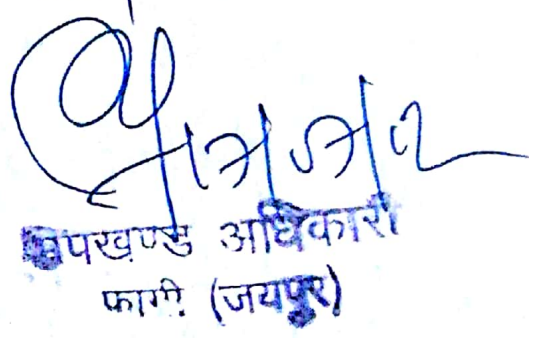 उपखण्ड अधिकारी
फागी (जयपुर)